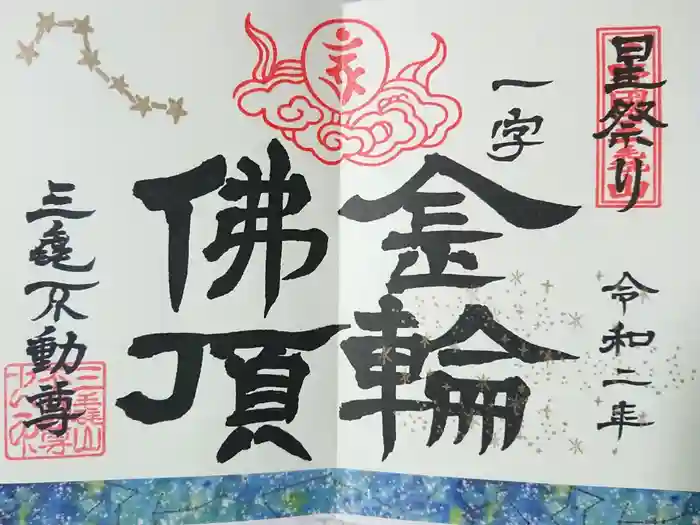 星祭り
令和二年
一字
金輪
佛頂
三亀不動尊